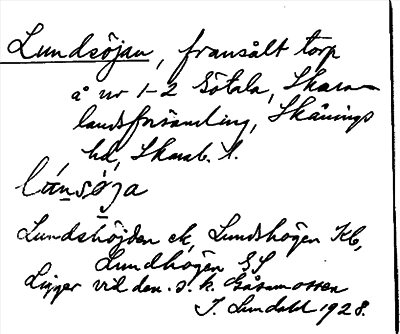 Lundsöjan, frånsålt torp
å nr 1-2 Götala, Skara
landsförsamling, Skånings
hd, Skarab. l.
lúnsøja
Lundshöjden ek, Lundshögen Kb,
Lundhögen GS
Ligger vid den s. k. Gåsamossen
I. Lundahl 1928.